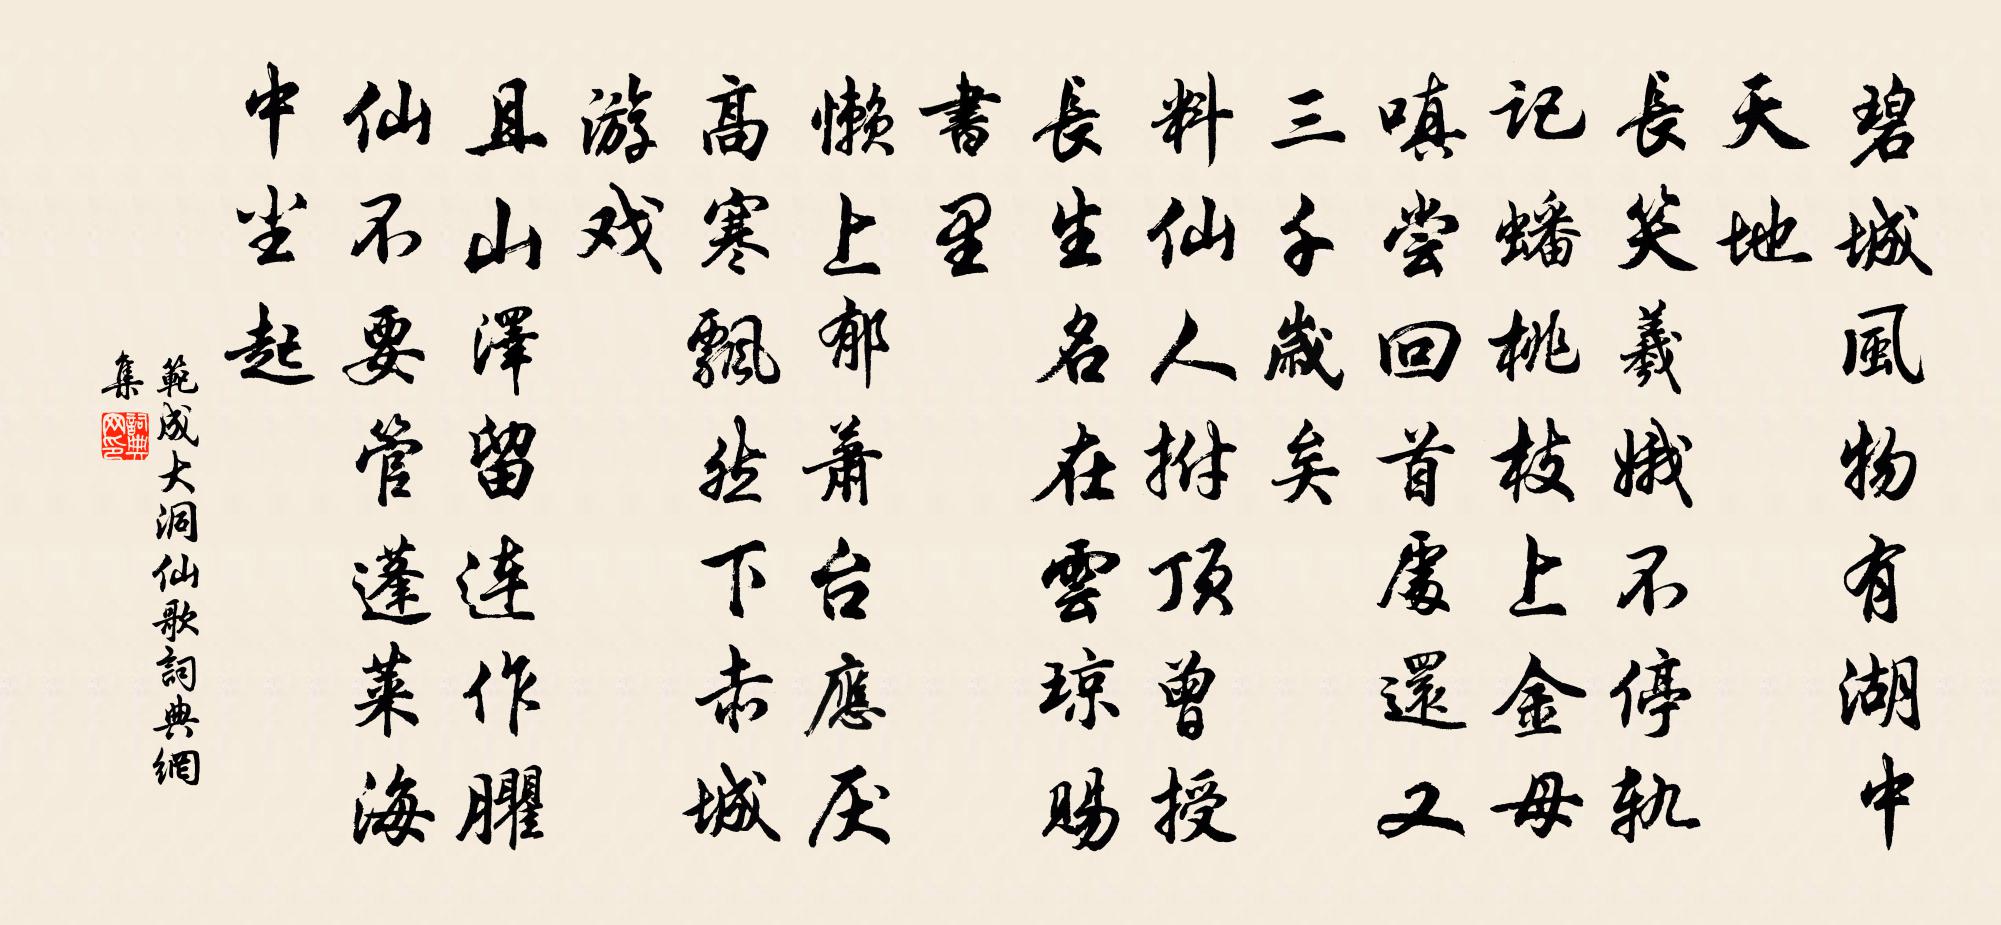 碧城風物有湖中
天地
長笑羲娥不停軌
記蟠桃枝上金母
嗔尝回首處還又
三千歲矣
料仙人拊顶曾授
長生名在雲琼賜
書里
懒上郁萧台應厌
高寒飄然下赤城
游戏
且山澤留连作臞
仙不要管蓬莱海
中尘起
範成大洞仙歌詞典網
集
詞典网印